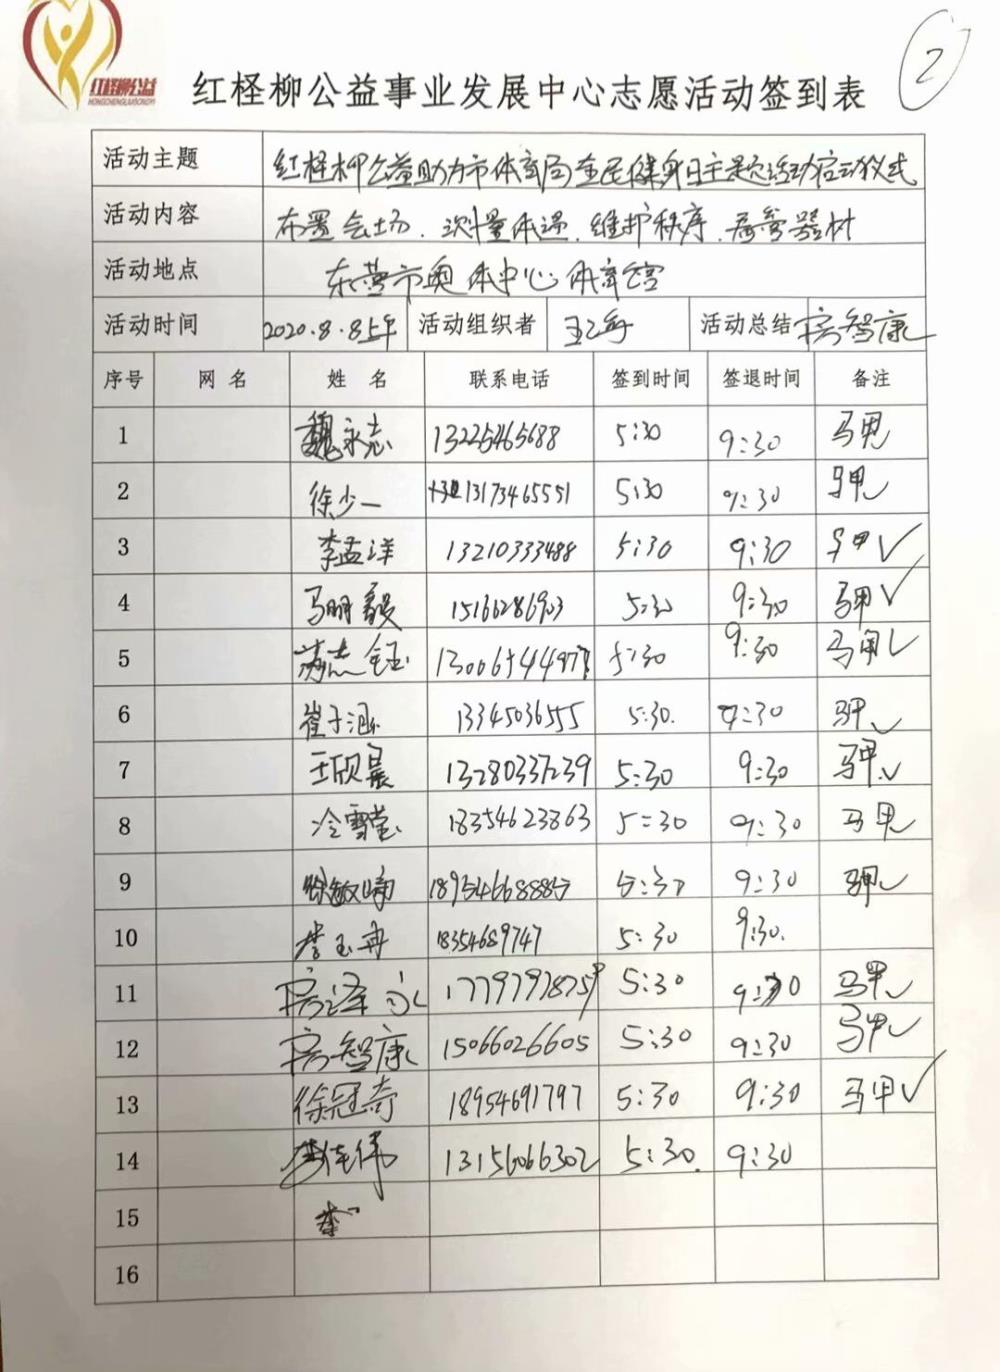 红柽柳公益
HONGCHENGLIUGONGYI
红柽柳公益事业发展中心志愿活动签到表
2
活动主题 红柽柳公益助力市体育局全民健身日主题活动启动仪式
活动内容 布置会场、测量体温、维护秩序、看管器材
活动地点 东营市奥体中心体育馆
活动时间 2020.8.8上午 活动组织者 活动总结 房智康
序号 网名 姓名 联系电话 签到时间 签退时间 备注
1 魏永志 13225465688 5:30 9:30 马甲
2 徐少一 13173465551 5:30 9:30 马甲✓
3 李孟洋 13210333488 5:30 9:30 马甲✓
4 马明毅 15166286903 5:30 9:30 马甲✓
5 志钰 5:30 9:30 马甲✓
6 崔子涵 13345036555 5:30. 9:30 马甲✓
7 王欣晨 13280337239 5:30 9:30 马甲✓
8 冷雪莹 18354623863 5:30 9:30 马甲✓
9 徐敏 18954668885 5:30 9:30 马甲✓
10 李玉冉 18354689747 5:30 9:30.
11 房泽 5:30 9:30 马甲✓
12 房智康 15066026605 5:30 9:30 马甲✓
13 徐冠奇 18954691797 5:30 9:30 马甲✓
14 佳伟 13156066302 5:30. 9:30
15
16